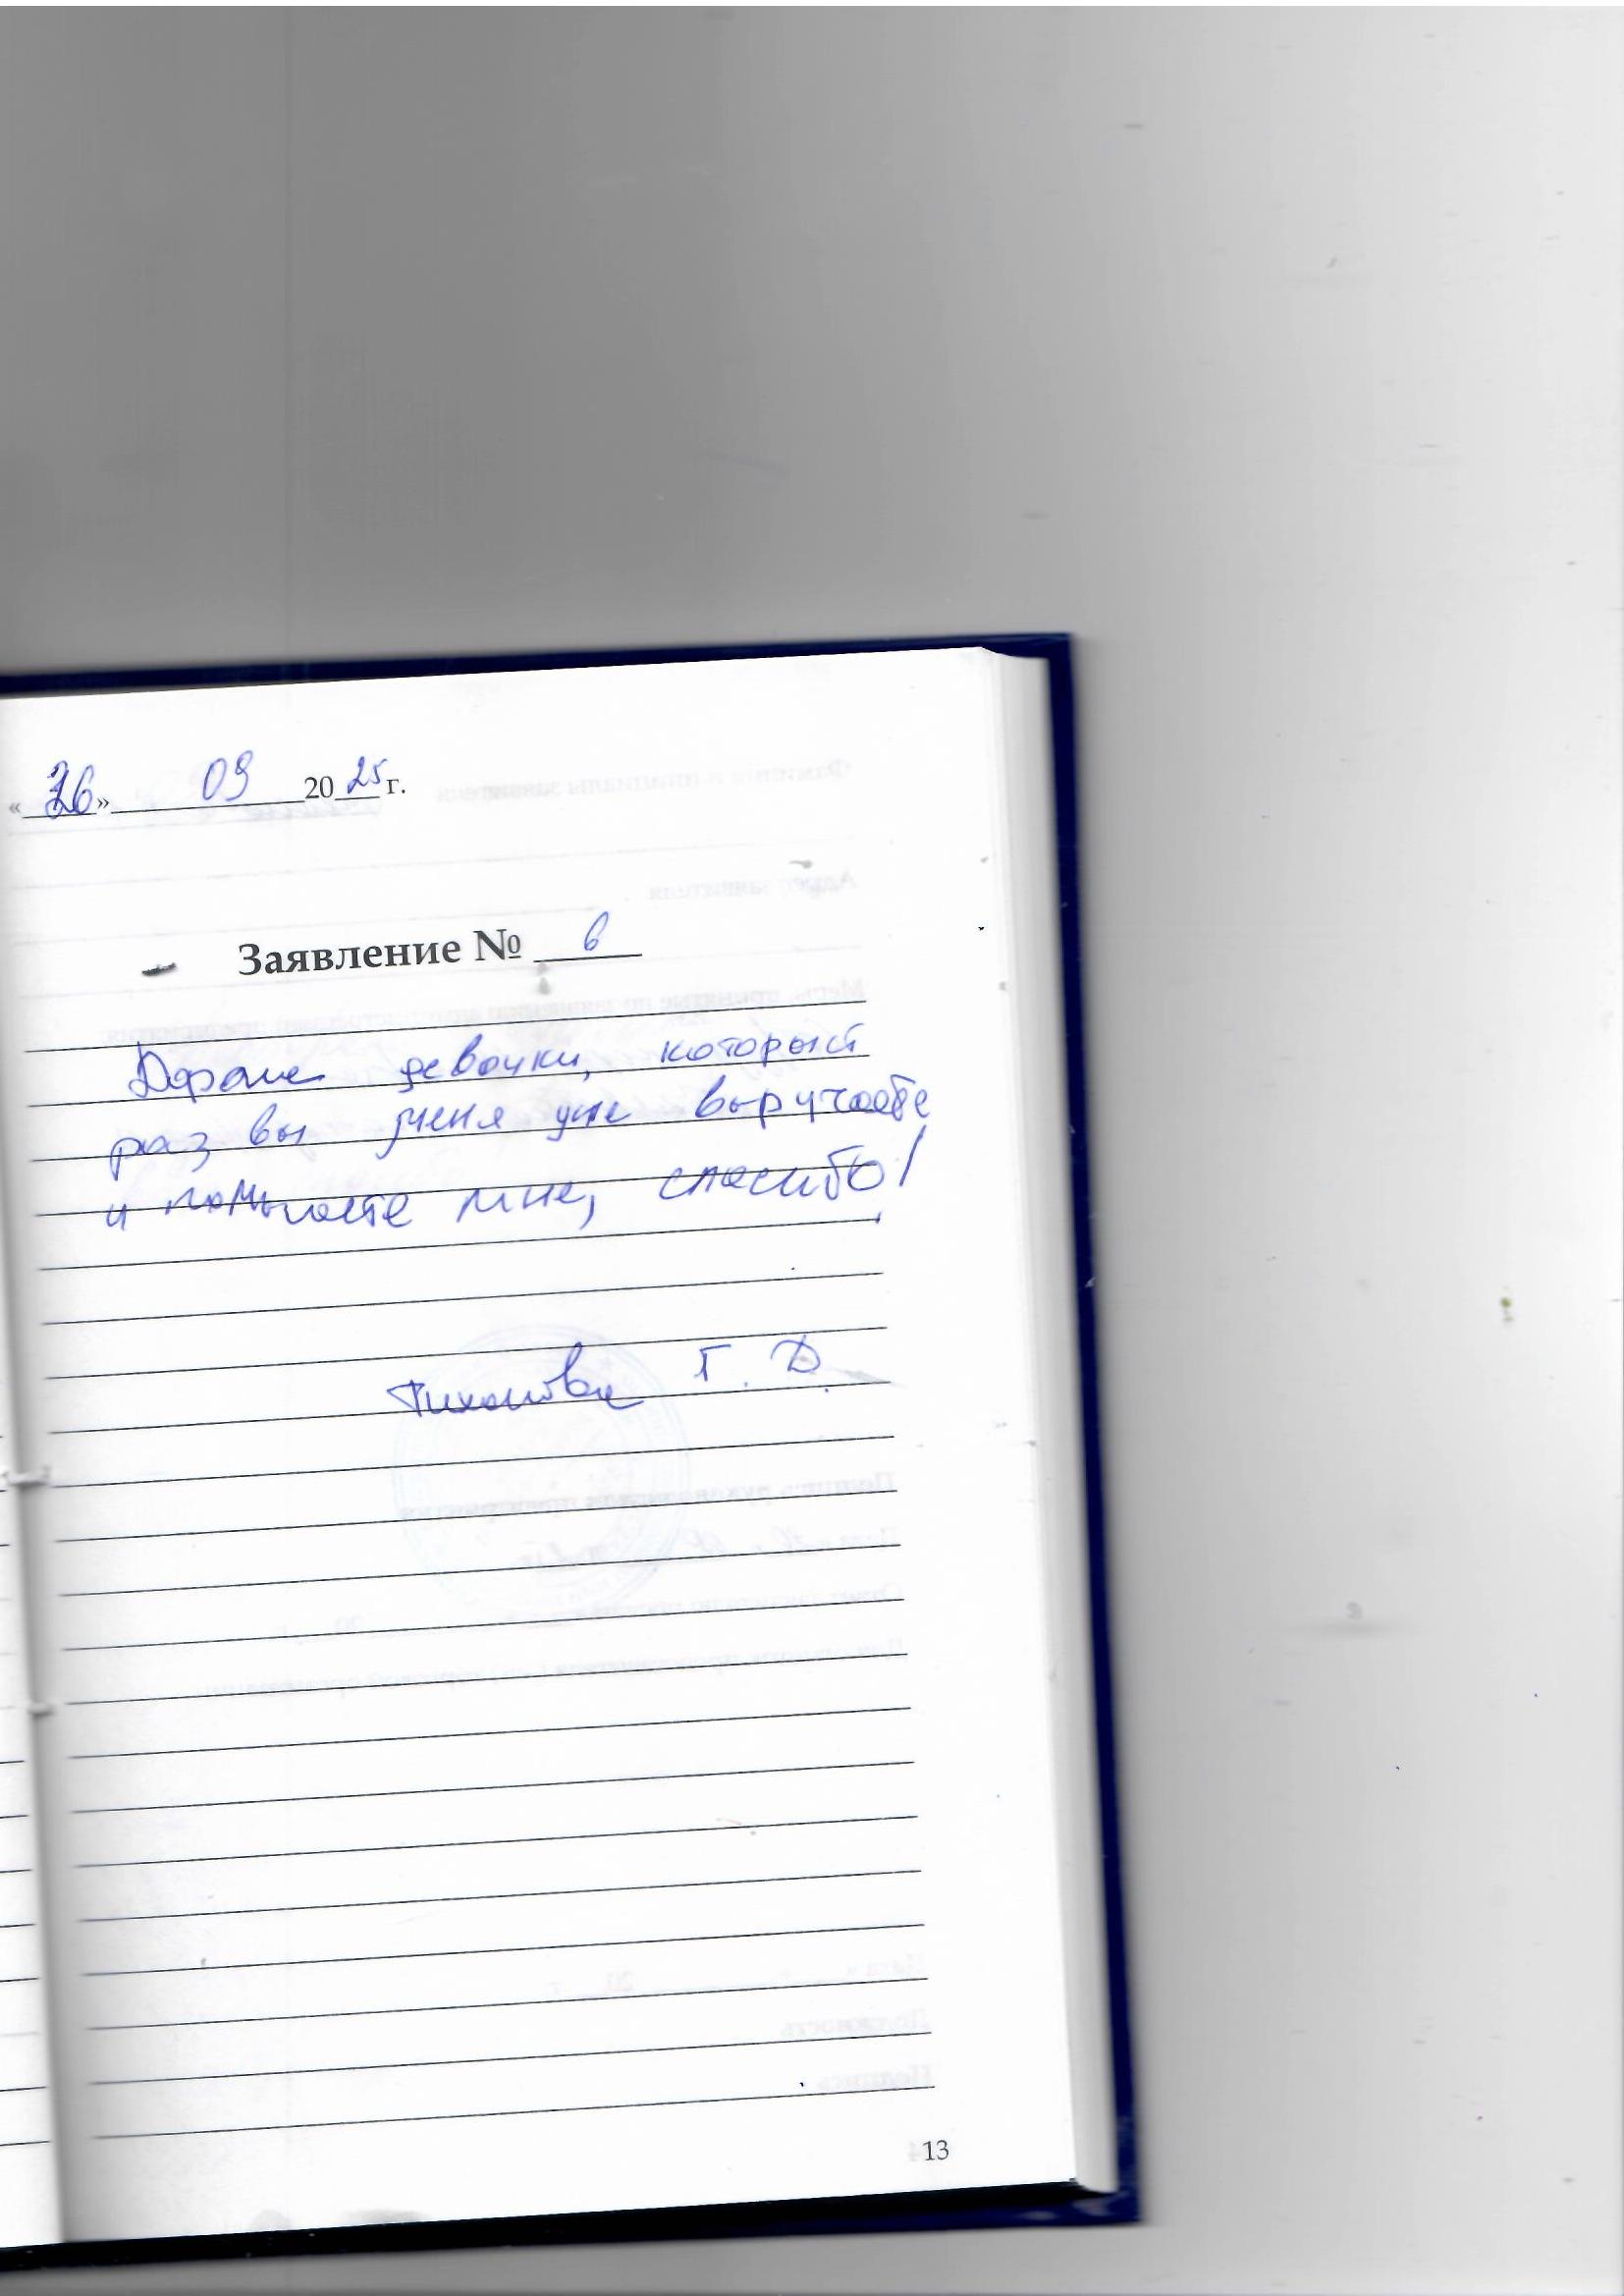 «26» 09 2025 г.
Заявление № 6
Дорогие девочки, который
раз вы меня уже выручаете
и помогаете мне, спасибо!
Тихонова Г. Д.
13